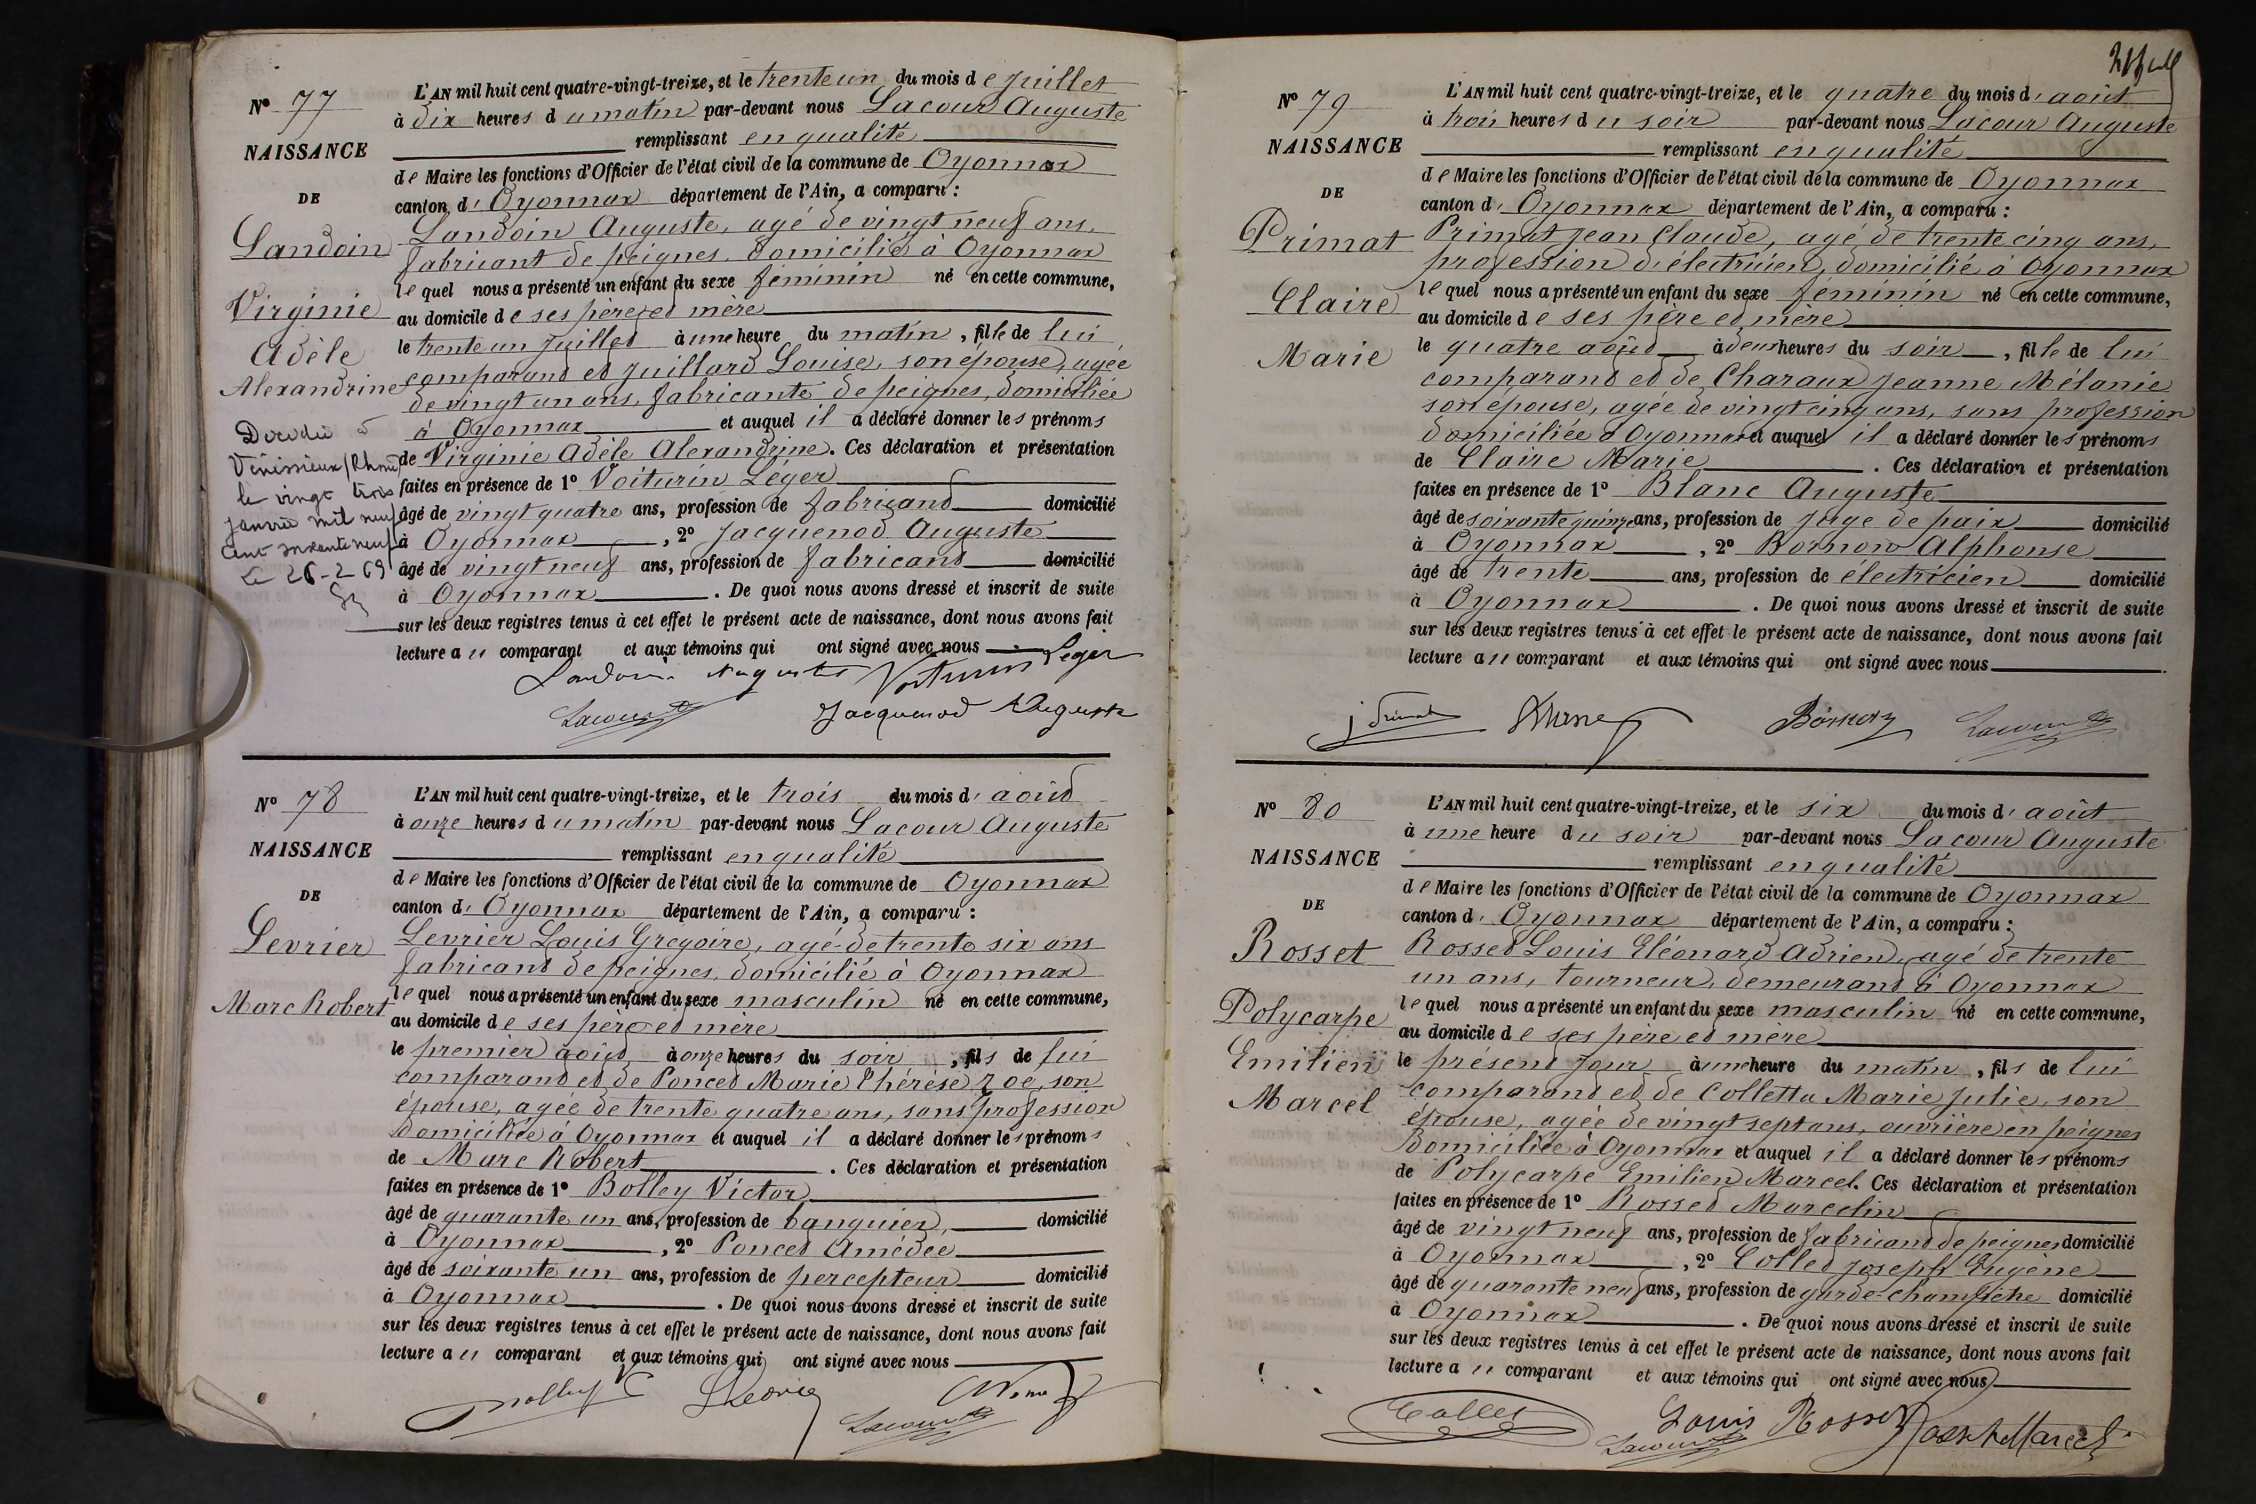 N° 77
NAISSANCE
DE
Landoin
Virginie
Adèle
Alexandrine
Décédée à
Vénissieux (Rhône)
le vingt trois
janvier mil neuf
cent soixante neuf
Le 26-2-69
L'AN mil huit cent quatre-vingt-treize, et le trente un du mois de juillet
à dix heures du matin par-devant nous Lacour Auguste
remplissant en qualité
de Maire les fonctions d'Officier de l'état civil de la commune de Oyonnax
canton d'Oyonnax département de l'Ain, a comparu :
Landoin Auguste, agé de vingt neuf ans,
fabricant de peignes, domicilié à Oyonnax
lequel nous a présenté un enfant du sexe féminin né en cette commune,
au domicile de ses père et mère
le trente un juillet à une heure du matin, fille de lui
comparant et Juillard Louise, son épouse, agée
de vingt un ans, fabricante de peignes, domiciliée
à Oyonnax et auquel il a déclaré donner les prénoms
de Virginie Adèle Alexandrine. Ces déclaration et présentation
faites en présence de 1° Voiturin Léger
âgé de vingt quatre ans, profession de fabricant domicilié
à Oyonnax, 2° Jacquenod Auguste
âgé de vingt neuf ans, profession de fabricant domicilié
à Oyonnax. De quoi nous avons dressé et inscrit de suite
sur les deux registres tenus à cet effet le présent acte de naissance, dont nous avons fait
lecture au comparant et aux témoins qui ont signé avec nous
Landoin Auguste Voiturin Léger
Lacour Jacquenod Auguste
N° 78
NAISSANCE
DE
Levrier
Marc Robert
L'AN mil huit cent quatre-vingt-treize, et le trois du mois d'août
à onze heures du matin par-devant nous Lacour Auguste
remplissant en qualité
de Maire les fonctions d'Officier de l'état civil de la commune de Oyonnax
canton d'Oyonnax département de l'Ain, a comparu :
Levrier Louis Gregoire, agé de trente six ans
fabricant de peignes, domicilié à Oyonnax
lequel nous a présenté un enfant du sexe masculin né en cette commune,
au domicile de ses père et mère
le premier août à onze heures du soir, fils de lui
comparant et de Poncet Marie Thérèse Zoé, son
épouse, agée de trente quatre ans, sans profession
domiciliée à Oyonnax et auquel il a déclaré donner les prénoms
de Marc Robert. Ces déclaration et présentation
faites en présence de 1° Bolley Victor
âgé de quarante un ans, profession de banquier, domicilié
à Oyonnax, 2° Poncet Amédée
âgé de soixante un ans, profession de percepteur domicilié
à Oyonnax. De quoi nous avons dressé et inscrit de suite
sur les deux registres tenus à cet effet le présent acte de naissance, dont nous avons fait
lecture au comparant et aux témoins qui ont signé avec nous
Bolley V Levrier
Lacour
N° 79
NAISSANCE
DE
Primat
Claire
Marie
L'AN mil huit cent quatre-vingt-treize, et le quatre du mois d'août
à trois heures du soir par-devant nous Lacour Auguste
remplissant en qualité
de Maire les fonctions d'Officier de l'état civil de la commune de Oyonnax
canton d'Oyonnax département de l'Ain, a comparu :
Primat Jean Claude, agé de trente cinq ans,
profession d'électricien, domicilié à Oyonnax
lequel nous a présenté un enfant du sexe féminin né en cette commune,
au domicile de ses père et mère
le quatre août à deux heures du soir, fille de lui
comparant et de Charaux Jeanne Mélanie
son épouse, agée de vingt cinq ans, sans profession
domiciliée à Oyonnax et auquel il a déclaré donner les prénoms
de Claire Marie. Ces déclaration et présentation
faites en présence de 1° Blanc Auguste
âgé de soixante quinze ans, profession de juge de paix domicilié
à Oyonnax, 2° Bornow Alphonse
âgé de trente ans, profession de électricien domicilié
à Oyonnax. De quoi nous avons dressé et inscrit de suite
sur les deux registres tenus à cet effet le présent acte de naissance, dont nous avons fait
lecture au comparant et aux témoins qui ont signé avec nous
J Primat Lacour
N° 80
NAISSANCE
DE
Rosset
Polycarpe
Emilien
Marcel
L'AN mil huit cent quatre-vingt-treize, et le six du mois d'août
à une heure du soir par-devant nous Lacour Auguste
remplissant en qualité
de Maire les fonctions d'Officier de l'état civil de la commune de Oyonnax
canton d'Oyonnax département de l'Ain, a comparu :
Rosset Louis Eléonard Adrien, agé de trente
un ans, tourneur, demeurant à Oyonnax
lequel nous a présenté un enfant du sexe masculin né en cette commune,
au domicile de ses père et mère
le présent jour à une heure du matin, fils de lui
comparant et de Colletta Marie Julie, son
épouse, agée de vingt sept ans, ouvrière en peignes
Domiciliée à Oyonnax et auquel il a déclaré donner les prénoms
de Polycarpe Emilien Marcel. Ces déclaration et présentation
faites en présence de 1° Rosset Marcelin
âgé de vingt neuf ans, profession de fabricant de peignes domicilié
à Oyonnax, 2° Collet Joseph Eugène
âgé de quarante neuf ans, profession de garde-champêtre domicilié
à Oyonnax. De quoi nous avons dressé et inscrit de suite
sur les deux registres tenus à cet effet le présent acte de naissance, dont nous avons fait
lecture au comparant et aux témoins qui ont signé avec nous
Collet Louis Rosset Rosset Marcel
Lacour